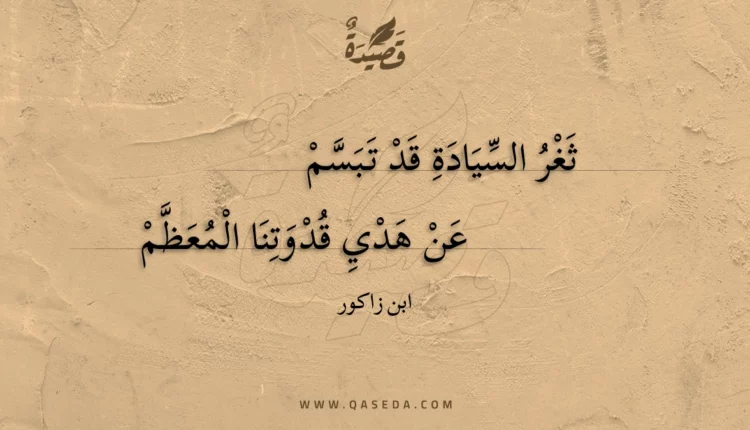 قَصِيْدَةٌ
ثَغْرُ السِّيَادَةِ قَدْ تَبَسَّمْ
عَنْ هَدْيِ قُدْوَتِنَا الْمُعَظَّمْ
ابن زاكور
WWW.QASEDA.COM